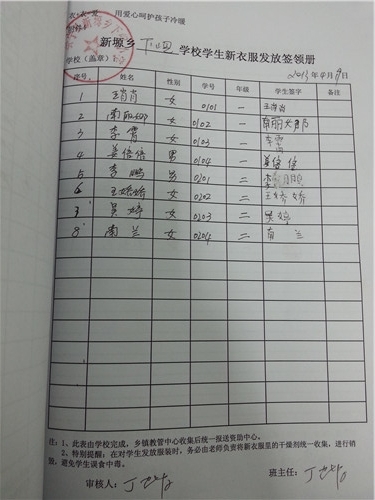 衣·衣·爱 用爱心呵护孩子冷暖
附件4
新塬乡 学校学生新衣服发放签领册
学校（盖章） 2013年4月9日
序号 姓名 性别 学号 年级 学生签字 备注
1 王肖肖 女 0101 一 王肖肖
2 南丽娜 女 0102 一 南丽娜
3 李霄 女 0103 一 李霄
4 姜倍倍 男 0104 一 姜倍倍
5 李鹏 男 0201 二 李鹏
6 王娇娇 女 0202 二 王娇娇
7 吴婷 女 0203 二 吴婷
8 南兰 女 0204 二 南兰
注：1、此表由学校完成，乡镇教管中心收集后统一报送资助中心。
2、特别提醒：在对学生发放服装时，务必由老师负责将新衣服里的干燥剂统一收集，进行销
毁，避免学生误食中毒。
审核人： 班主任：